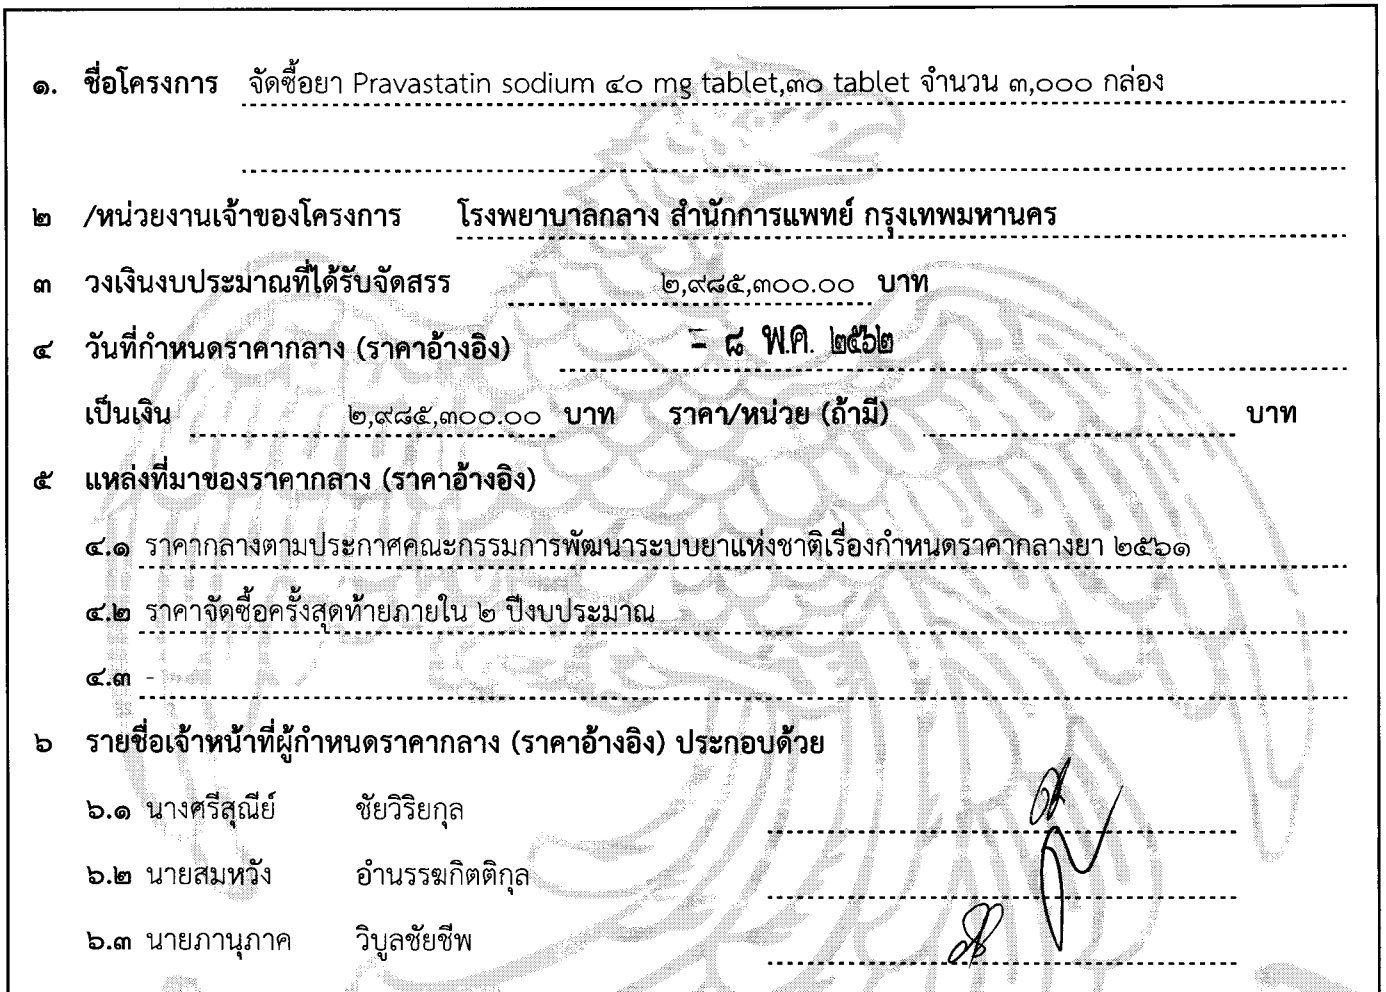 ๑. ชื่อโครงการ จัดซื้อยา Pravastatin sodium ๔๐ mg tablet,๓๐ tablet จำนวน ๓,๐๐๐ กล่อง
๒ /หน่วยงานเจ้าของโครงการ โรงพยาบาลกลาง สำนักการแพทย์ กรุงเทพมหานคร
๓ วงเงินงบประมาณที่ได้รับจัดสรร ๒,๙๘๕,๓๐๐.๐๐ บาท
๔ วันที่กำหนดราคากลาง (ราคาอ้างอิง) - ๘ พ.ค. ๒๕๖๒
เป็นเงิน ๒,๙๘๕,๓๐๐.๐๐ บาท ราคา/หน่วย (ถ้ามี) บาท
๕ แหล่งที่มาของราคากลาง (ราคาอ้างอิง)
๕.๑ ราคากลางตามประกาศคณะกรรมการพัฒนาระบบยาแห่งชาติเรื่องกำหนดราคากลางยา ๒๕๖๑
๕.๒ ราคาจัดซื้อครั้งสุดท้ายภายใน ๒ ปีงบประมาณ
๕.๓ -
๖ รายชื่อเจ้าหน้าที่ผู้กำหนดราคากลาง (ราคาอ้างอิง) ประกอบด้วย
๖.๑ นางศรีสุณีย์ ชัยวิริยกุล
๖.๒ นายสมหวัง อำนรรฆกิตติกุล
๖.๓ นายภานุภาค วิบูลชัยชีพ